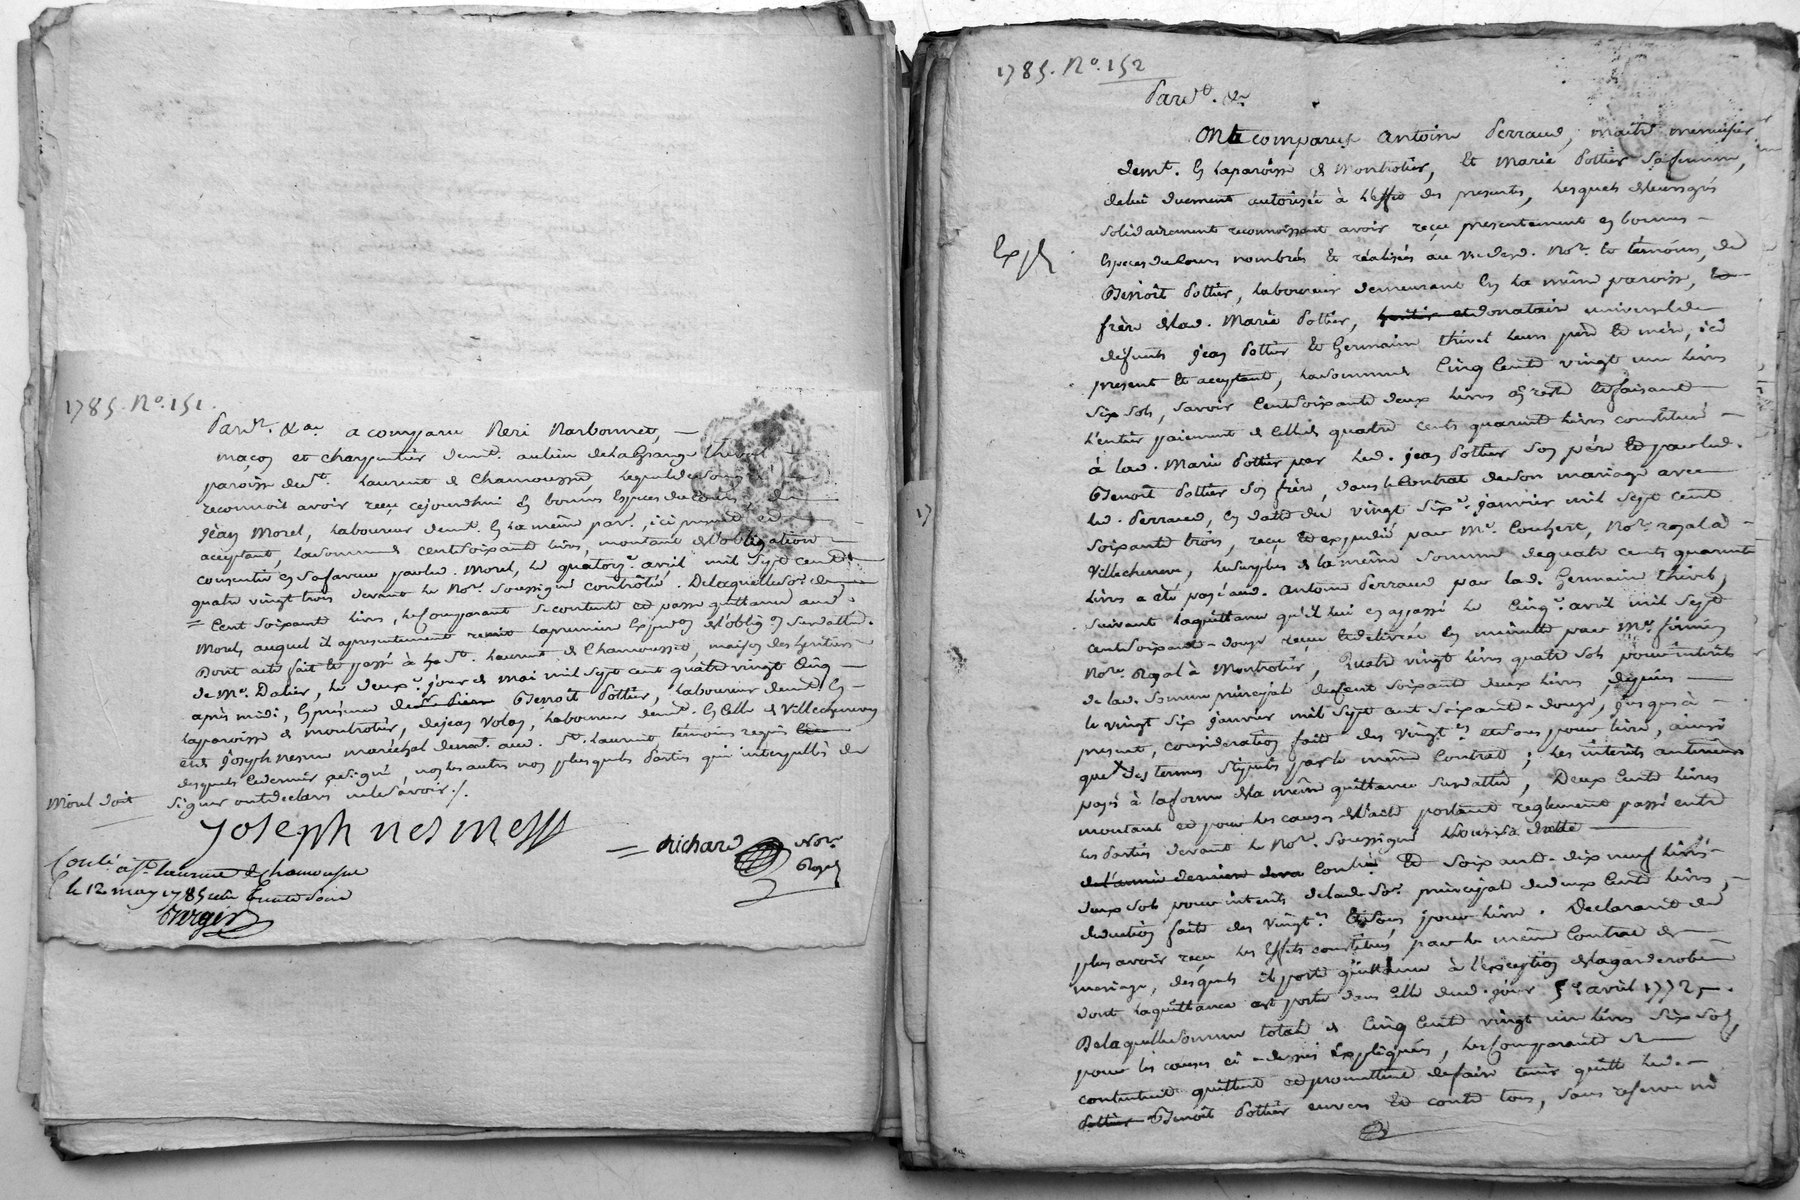 1785. No. 151.
Pard.t &a. a comparu Neri Narbonnet, —
maçon et charpentier demt. au lieu de la Grange thivel
paroisse de St. Laurent de Chamousset, lequel de son gré
reconnoit avoir reçu cejourdhui en bonnes Especes de cours de
Jean Morel, Laboureur demt. en la même par., ici present et
acceptant, la somme de cent soixante livres, montant de l'obligation
consentie en sa faveur par led. Morel, le quatorze. avril mil sept cent
quatre vingt trois devant le Nore. soussigné contrôlé. De laquelle so.e de
= Cent soixante livres, le comparant se contente et passe quittance aud.
Morel, auquel il a presentement remis la premiere Expeon. de l'oblig.on susdatée.
Dont acte fait et passé à St. Laurent de Chamousset, maison des heritiers
de Me. Dalier, le deux.e jour de mai mil sept cent quatre vingt cinq —
après midi, en présence de Benoit Pottier, laboureur demt. en
la paroisse de montrotier, de jean Volay, laboureur demt. en celle de Villechenève
et de Joseph nesme maréchal demt. aud. St. laurent témoins requis
desquels le dernier a signé, non les autres non plus que les Parties qui interpellés de
signer ont déclaré ne le savoir ./.
Morel doit
joseph nesmess
= Richard Nore.
Royal
Conlé. à St. Laurent de Chamousset
le 12 may 1785 reçu trente sous
1785. No. 152
Pard.t &a.
Ont comparus Antoine Perraud, maitre menuisier
demt. en la paroisse de Montrotier, Et Marie Pottier sa femme,
de lui duement autorisée à l'effet des presentes, lesquels de leurs grés
solidairement reconnoissent avoir reçu presentement en bonnes —
Expe
Especes de cours nombrés et réalisés au vu dud. Nore. et témoins, de
Benoît Pottier, laboureur demeurant en la même paroisse, et
frère de lad. Marie Pottier, heritier et donataire universel de
défunts Jean Pottier et Germaine thivel leurs père et mère, ici
present et acceptant, la somme de Cinq Cent vingt une livres
six sols, savoir Cent soixante deux livres en reste et faisant
l'entier paiement de celle de quatre cents quarante livres constituée —
à lad. Marie Pottier par led. jean Pottier son père et par led.
Benoit Pottier son frère, dans le Contrat de son mariage avec
led. Perraud, en date du vingt six.e janvier mil sept cent
soixante trois, reçu et expedié par Me. Couhert, Nore. royal à
Villecheneve, le surplus de la même somme de quatre cents quarante
livres a été payé aud. Antoine Perraud par lad. Germaine thivel,
suivant la quittance qu'il lui en a passé le cinq.e avril mil sept
cent soixante-douze reçue et delivrée en minutte par Me.
Nore. Royal à Montrotier, Quatre vingt livres quatre sols pour interets
de lad. somme principal de cent soixante deux livres, depuis —
le vingt six janvier mil sept cent soixante-douze, jusques à —
present, consideration faite des vingt.es et sous pour livre, ainsi
que des termes stipulés par le même Contrat; les interêts anterieurs
payés à la forme de la même quittance susdattée, Deux Cents livres
montant et pour les causes de l'acte portant reglement passé entre
les parties devant le Nore. soussigné
de l'année derniere dura Contlé. Et soixante-dix neuf livres —
deux sols pour interets de lade. so.e principal de deux Cents livres, —
deduction faite des vingt.es et sous pour livre. Declarant de
plus avoir reçu les Effets constitués par le même Contrat de
mariage, desquels il porte quittance à l'exception de la garderobe
dont la quittance est portée dans celle dud. jour 5e. avril 1772.
De laquelle somme totale de Cinq Cent vingt une livres six sols
pour les causes ci-dessus Expliquées, les Comparants se —
contentent quittent et promettent de faire tenir quitte led. —
Pottier Benoît Pottier envers et contre tous, sans reserve ni